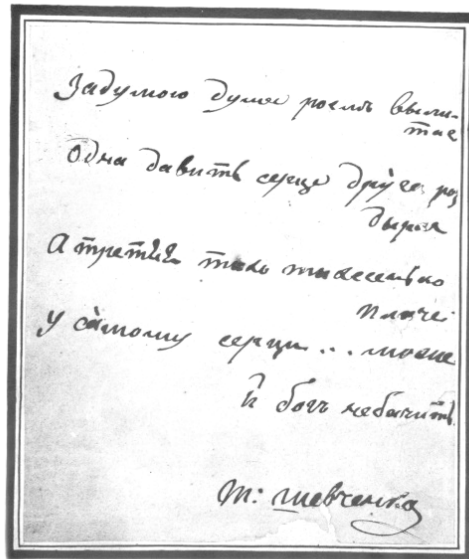 За думою дума роемъ выли-
тае
Одна давить серце друга роз
дырае
А третяя тыхо тыхесенько
плаче
У самому серци... може
й богъ небачить.
Т: Шевченко